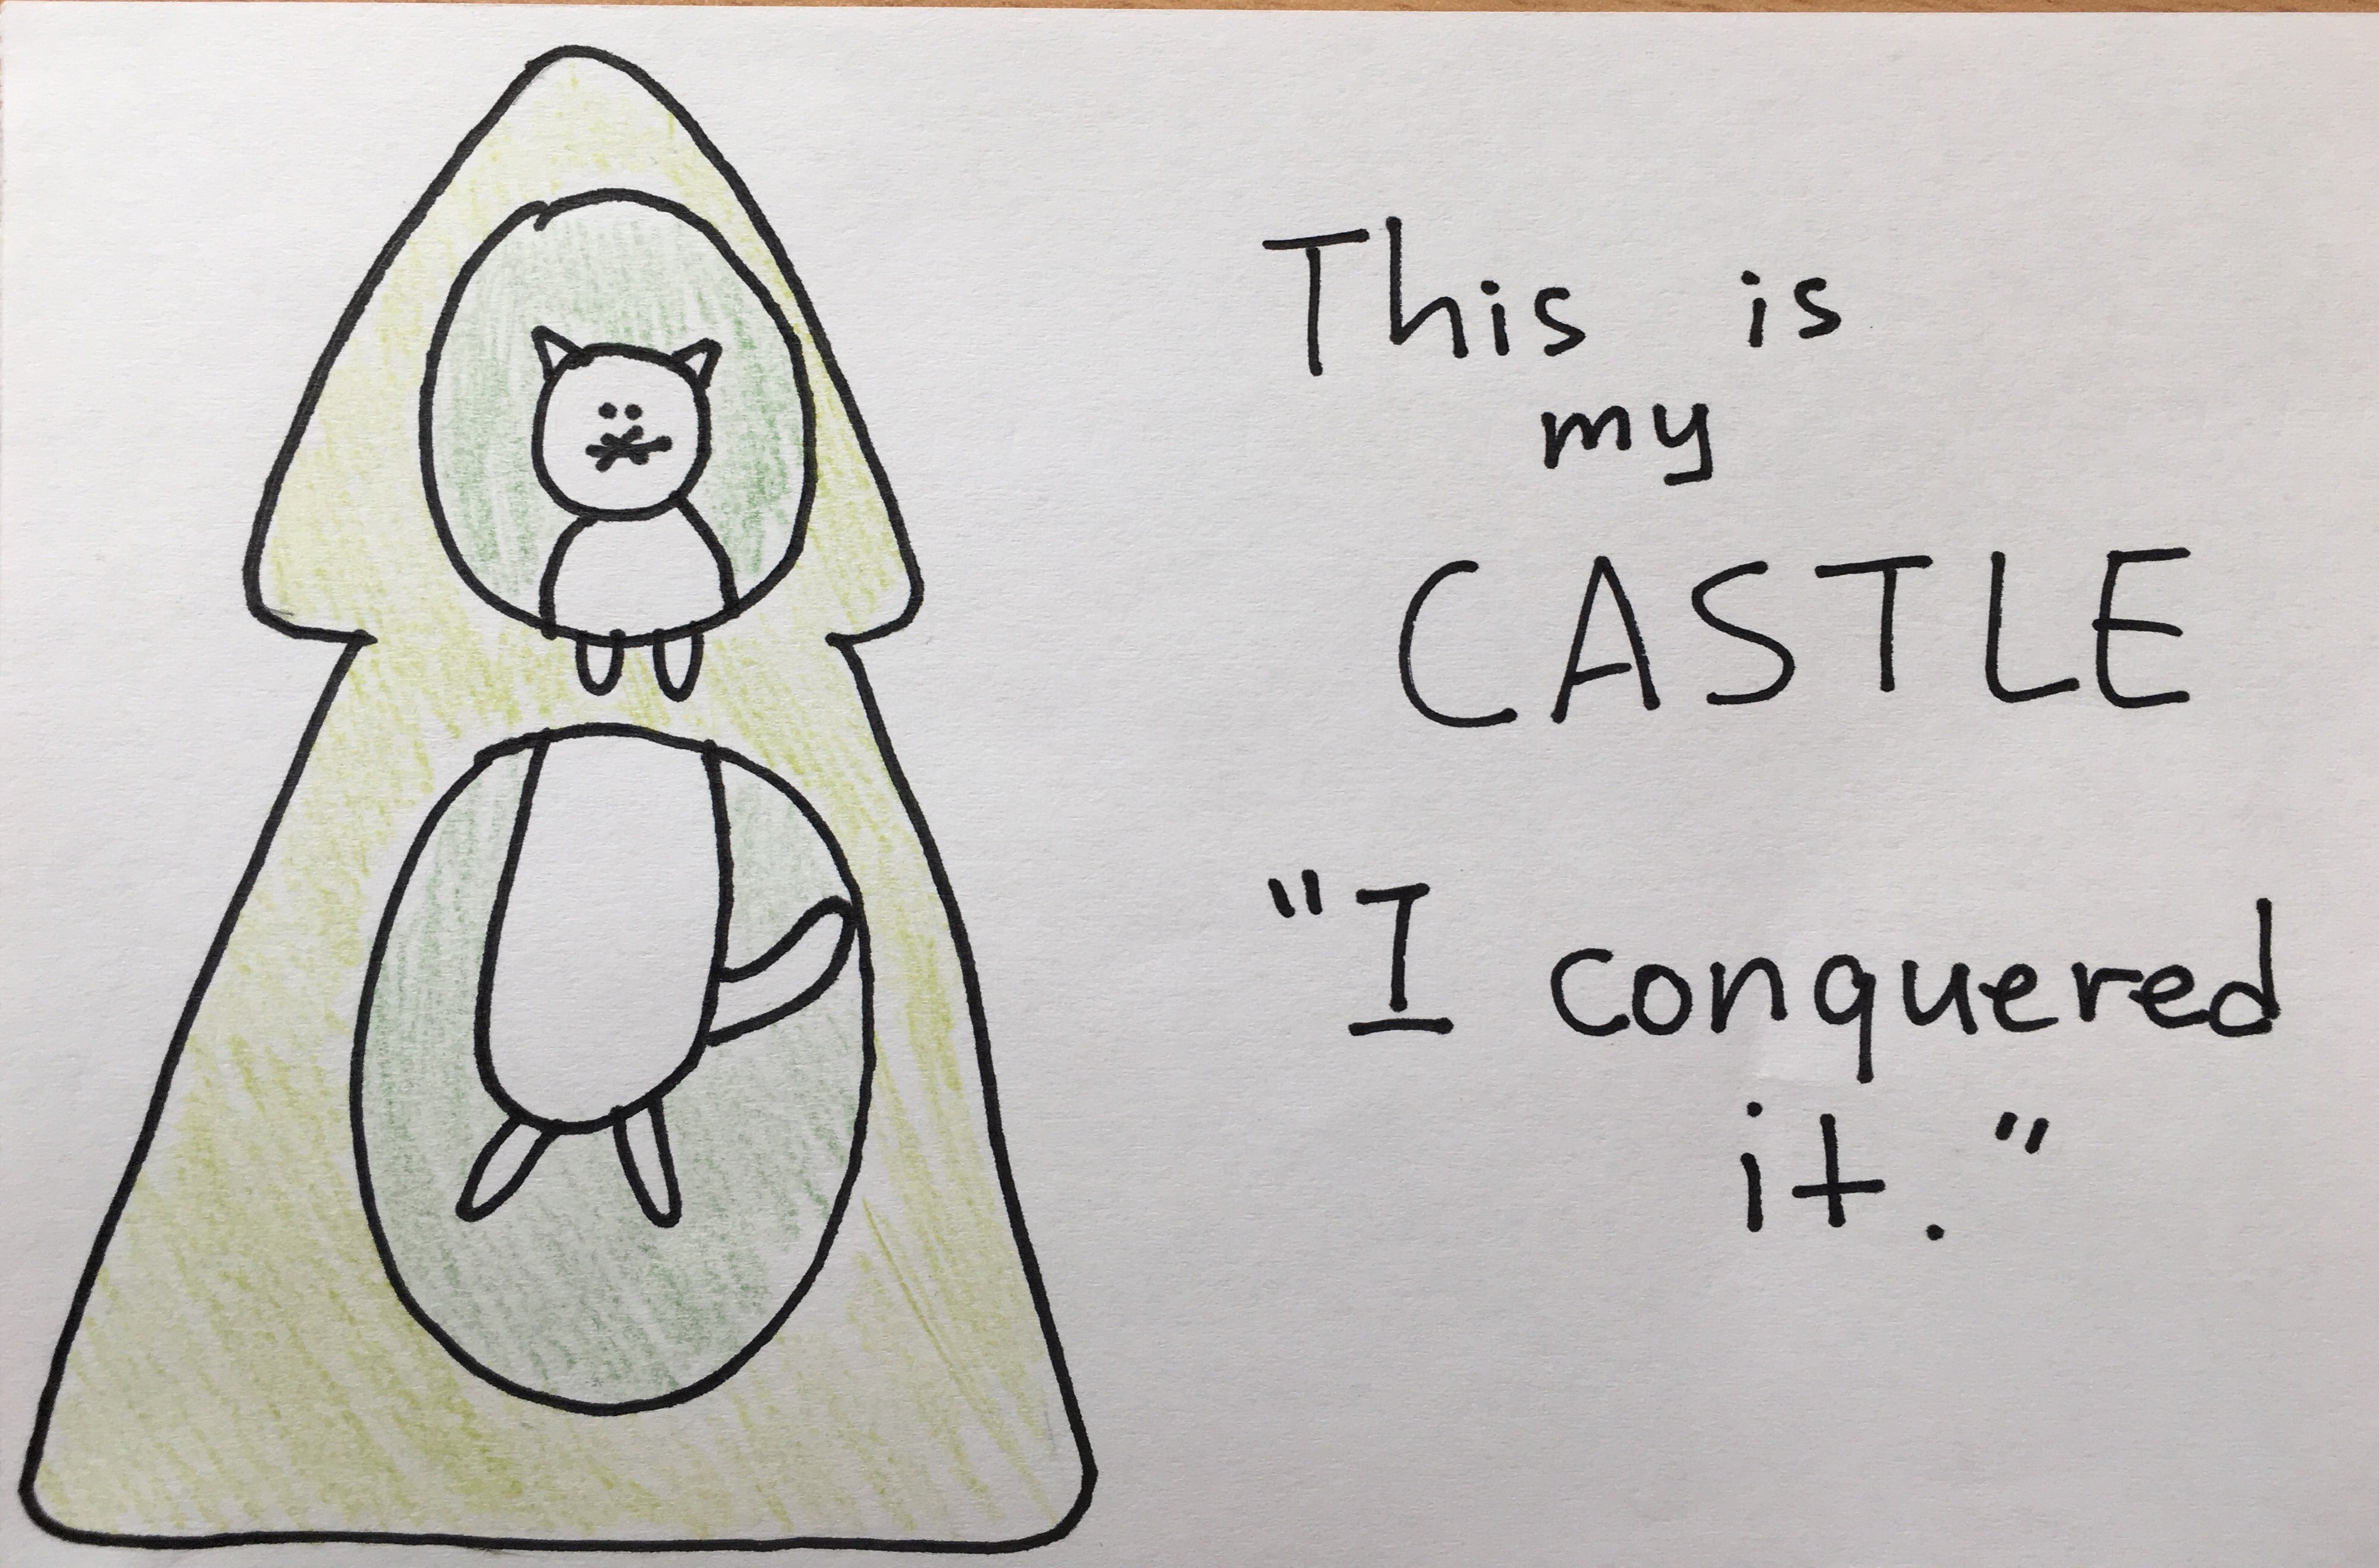 This is
my
CASTLE
"I conquered
it."